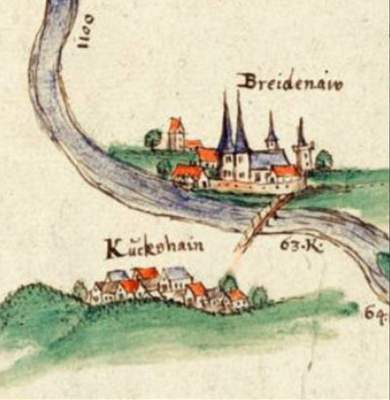 1100
Breidenaiw
Kŭckshain
63.K.
64.